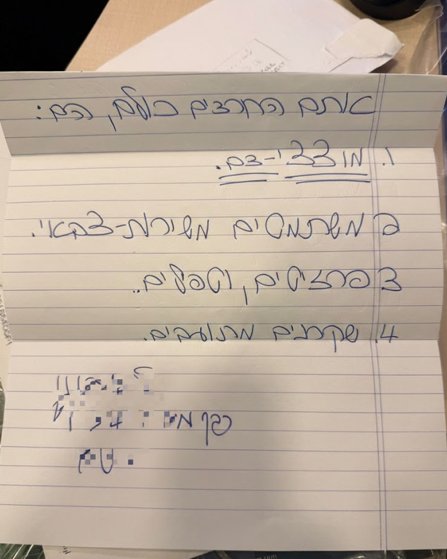 אתם החרדים כולם, הם:
1. מוצצי-דם.
2 משתמטים משירות-צבאי.
3 פרזיטים, וטפילים..
4. שקרנים מתועבים.